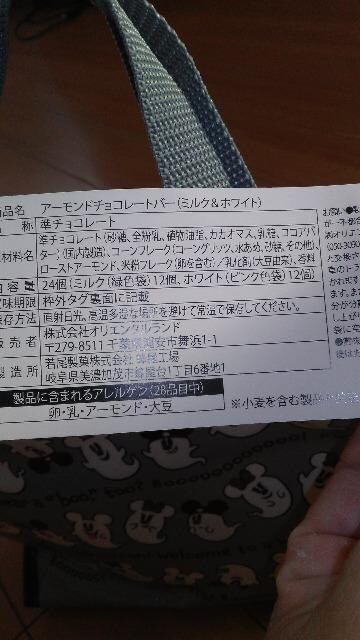 品名 アーモンドチョコレートバー(ミルク&ホワイト)
称 準チョコレート
材料名 準チョコレート(砂糖、全粉乳、植物油脂、カカオマス、乳糖、ココアバ
ター)(国内製造)、コーンフレーク(コーングリッツ、水あめ、砂糖、その他)、
ローストアーモンド、米粉フレーク(卵を含む)/乳化剤(大豆由来)、香料
内容量 24個(ミルク(緑色袋)12個、ホワイト(ピンク色袋)12個)
賞味期限 枠外タグ裏面に記載
保存方法 直射日光、高温多湿な場所を避けて常温で保存してください。
販売者 株式会社オリエンタルランド
〒279-8511 千葉県浦安市舞浜1-1
製造所 若尾製菓株式会社 蜂屋工場
岐阜県美濃加茂市蜂屋台1丁目6番地1
製品に含まれるアレルゲン(28品目中)
卵・乳・アーモンド・大豆
※小麦を含む製品